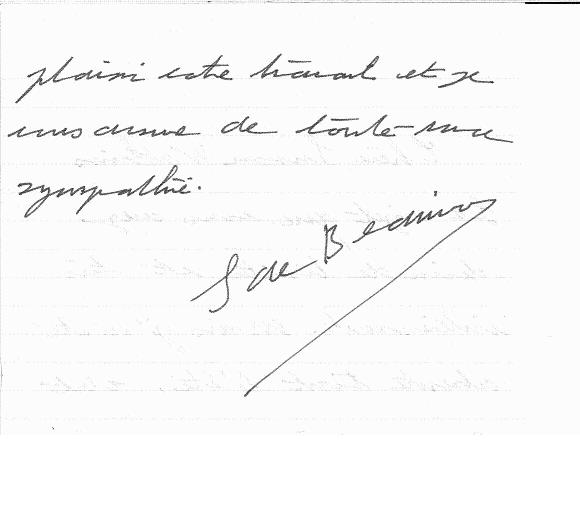 plaisir votre travail et je
vous assure de toute ma
sympathie.
S de Beauvoir